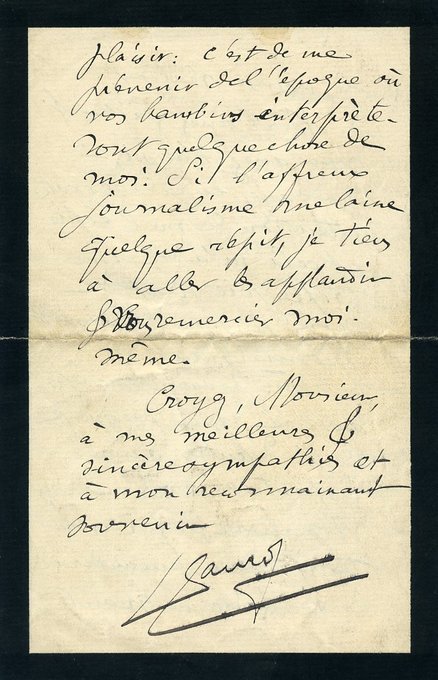 plaisir : c'est de me
prévenir de l'époque où
vos bambins interprète-
ront quelque chose de
moi. Si l'affreux
journalisme me laisse
quelque répit, je tiens
à aller les applaudir
& vous remercier moi-
même.
Croyez, Monsieur,
à mes meilleures &
sincère sympathies et
à mon reconnaissant
souvenir